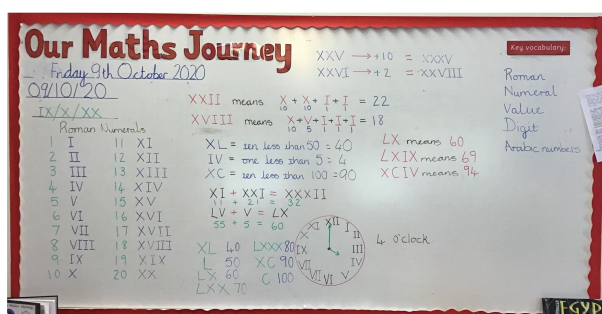 Our Maths Journey
Friday 9th October 2020
09/10/20
IX/X/XX
Roman Numerals
1 I
2 II
3 III
4 IV
5 V
6 VI
7 VII
8 VIII
9 IX
10 X
11 XI
12 XII
13 XIII
14 XIV
15 XV
16 XVI
17 XVII
18 XVIII
19 XIX
20 XX
XXV → +10 = XXXV
XXVI → +2 = XXVIII
XXII means X + X + I + I = 22
10 10 1 1
XVIII means X+V+I+I+I = 18
10 5 1 1 1
XL = ten less than 50 = 40
IV = one less than 5 = 4
XC = ten less than 100 = 90
LX means 60
LXIX means 69
XCIV means 94
XI + XXI = XXXII
11 + 21 = 32
LV + V = LX
55 + 5 = 60
XL 40
L 50
LX 60
LXX 70
LXXX 80
XC 90
C 100
XII
I
II
III
IV
V
VI
VII
VIII
IX
X
XI
4 o'clock
Key vocabulary:
Roman
Numeral
Value
Digit
Arabic numbers
EGYP